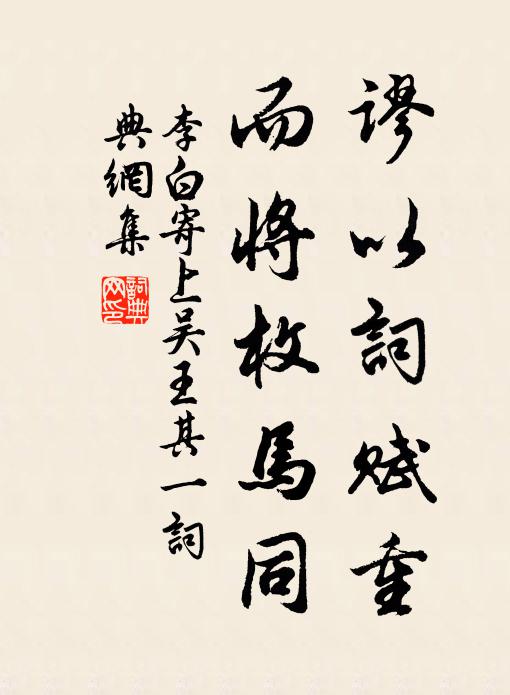 謬以詞賦重
而將枚馬同
李白寄上吴王其一詞
典網集
詞典
网印